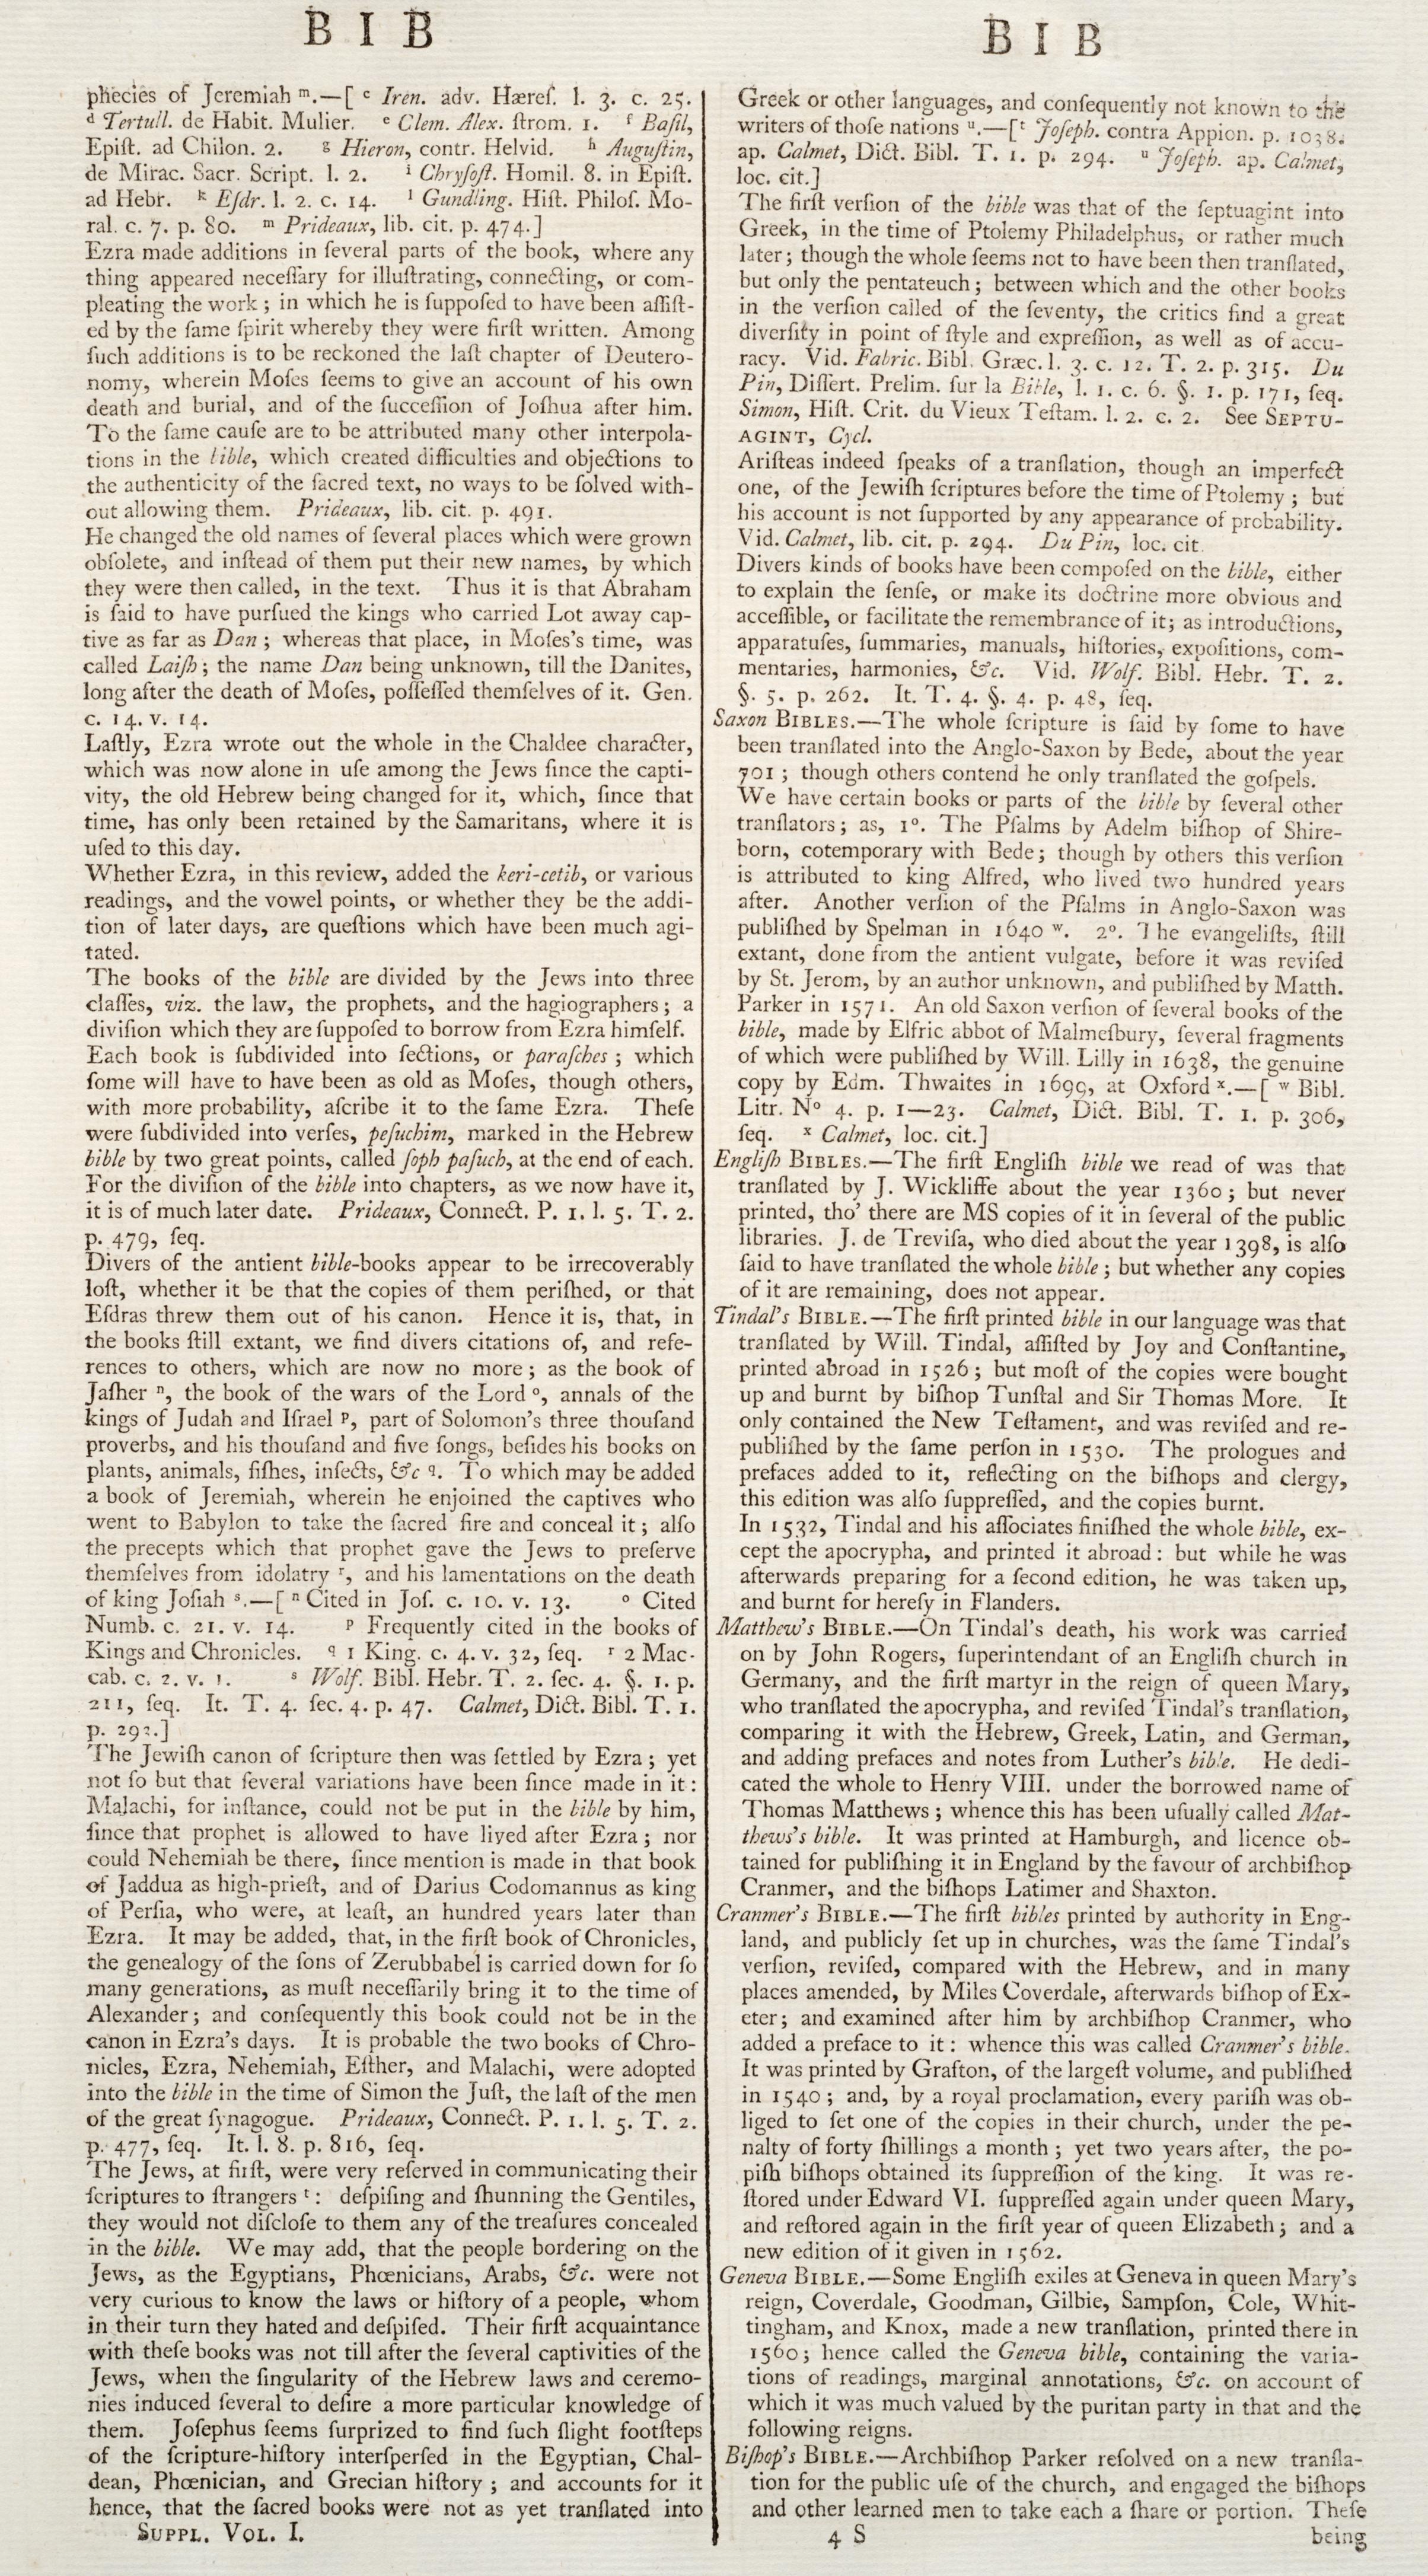 B I B
phecies of Jeremiah ᵐ.—[ ᶜ Iren. adv. Hæreſ. l. 3. c. 25.
ᵈ Tertull. de Habit. Mulier. ᵉ Clem. Alex. ſtrom. 1. ᶠ Baſil,
Epiſt. ad Chilon. 2. ᵍ Hieron, contr. Helvid. ʰ Auguſtin,
de Mirac. Sacr. Script. l. 2. ⁱ Chryſoſt. Homil. 8. in Epiſt.
ad Hebr. ᵏ Eſdr. l. 2. c. 14. ˡ Gundling. Hiſt. Philoſ. Mo-
ral. c. 7. p. 80. ᵐ Prideaux, lib. cit. p. 474.]
Ezra made additions in ſeveral parts of the book, where any
thing appeared neceſſary for illuſtrating, connecting, or com-
pleating the work; in which he is ſuppoſed to have been aſſiſt-
ed by the ſame ſpirit whereby they were firſt written. Among
ſuch additions is to be reckoned the laſt chapter of Deutero-
nomy, wherein Moſes ſeems to give an account of his own
death and burial, and of the ſucceſſion of Joſhua after him.
To the ſame cauſe are to be attributed many other interpola-
tions in the bible, which created difficulties and objections to
the authenticity of the ſacred text, no ways to be ſolved with-
out allowing them. Prideaux, lib. cit. p. 491.
He changed the old names of ſeveral places which were grown
obſolete, and inſtead of them put their new names, by which
they were then called, in the text. Thus it is that Abraham
is ſaid to have purſued the kings who carried Lot away cap-
tive as far as Dan; whereas that place, in Moſes's time, was
called Laiſh; the name Dan being unknown, till the Danites,
long after the death of Moſes, poſſeſſed themſelves of it. Gen.
c. 14. v. 14.
Laſtly, Ezra wrote out the whole in the Chaldee character,
which was now alone in uſe among the Jews ſince the capti-
vity, the old Hebrew being changed for it, which, ſince that
time, has only been retained by the Samaritans, where it is
uſed to this day.
Whether Ezra, in this review, added the keri-cetib, or various
readings, and the vowel points, or whether they be the addi-
tion of later days, are queſtions which have been much agi-
tated.
The books of the bible are divided by the Jews into three
claſſes, viz. the law, the prophets, and the hagiographers; a
diviſion which they are ſuppoſed to borrow from Ezra himſelf.
Each book is ſubdivided into ſections, or paraſches; which
ſome will have to have been as old as Moſes, though others,
with more probability, aſcribe it to the ſame Ezra. Theſe
were ſubdivided into verſes, peſuchim, marked in the Hebrew
bible by two great points, called ſoph paſuch, at the end of each.
For the diviſion of the bible into chapters, as we now have it,
it is of much later date. Prideaux, Connect. P. 1. l. 5. T. 2.
p. 479, ſeq.
Divers of the antient bible-books appear to be irrecoverably
loſt, whether it be that the copies of them periſhed, or that
Eſdras threw them out of his canon. Hence it is, that, in
the books ſtill extant, we find divers citations of, and refe-
rences to others, which are now no more; as the book of
Jaſher ⁿ, the book of the wars of the Lord ᵒ, annals of the
kings of Judah and Iſrael ᵖ, part of Solomon's three thouſand
proverbs, and his thouſand and five ſongs, beſides his books on
plants, animals, fiſhes, inſects, &c q. To which may be added
a book of Jeremiah, wherein he enjoined the captives who
went to Babylon to take the ſacred fire and conceal it; alſo
the precepts which that prophet gave the Jews to preſerve
themſelves from idolatry ʳ, and his lamentations on the death
of king Joſiah ˢ.—[ ⁿ Cited in Joſ. c. 10. v. 13. ᵒ Cited
Numb. c. 21. v. 14. ᵖ Frequently cited in the books of
Kings and Chronicles. q 1 King. c. 4. v. 32, ſeq. ʳ 2 Mac-
cab. c. 2. v. 1. ˢ Wolf. Bibl. Hebr. T. 2. ſec. 4. §. 1. p.
211, ſeq. It. T. 4. ſec. 4. p. 47. Calmet, Dict. Bibl. T. 1.
p. 292.]
The Jewiſh canon of ſcripture then was ſettled by Ezra; yet
not ſo but that ſeveral variations have been ſince made in it:
Malachi, for inſtance, could not be put in the bible by him,
ſince that prophet is allowed to have lived after Ezra; nor
could Nehemiah be there, ſince mention is made in that book
of Jaddua as high-prieſt, and of Darius Codomannus as king
of Perſia, who were, at leaſt, an hundred years later than
Ezra. It may be added, that, in the firſt book of Chronicles,
the genealogy of the ſons of Zerubbabel is carried down for ſo
many generations, as muſt neceſſarily bring it to the time of
Alexander; and conſequently this book could not be in the
canon in Ezra's days. It is probable the two books of Chro-
nicles, Ezra, Nehemiah, Eſther, and Malachi, were adopted
into the bible in the time of Simon the Juſt, the laſt of the men
of the great ſynagogue. Prideaux, Connect. P. 1. l. 5. T. 2.
p. 477, ſeq. It. l. 8. p. 816, ſeq.
The Jews, at firſt, were very reſerved in communicating their
ſcriptures to ſtrangers ᵗ: deſpiſing and ſhunning the Gentiles,
they would not diſcloſe to them any of the treaſures concealed
in the bible. We may add, that the people bordering on the
Jews, as the Egyptians, Phœnicians, Arabs, &c. were not
very curious to know the laws or hiſtory of a people, whom
in their turn they hated and deſpiſed. Their firſt acquaintance
with theſe books was not till after the ſeveral captivities of the
Jews, when the ſingularity of the Hebrew laws and ceremo-
nies induced ſeveral to deſire a more particular knowledge of
them. Joſephus ſeems ſurprized to find ſuch ſlight footſteps
of the ſcripture-hiſtory interſperſed in the Egyptian, Chal-
dean, Phœnician, and Grecian hiſtory; and accounts for it
hence, that the ſacred books were not as yet tranſlated into
SUPPL. VOL. I.
B I B
Greek or other languages, and conſequently not known to the
writers of thoſe nations ᵘ.—[ᵗ Joſeph. contra Appion. p. 1038.
ap. Calmet, Dict. Bibl. T. 1. p. 294. ᵘ Joſeph. ap. Calmet,
loc. cit.]
The firſt verſion of the bible was that of the ſeptuagint into
Greek, in the time of Ptolemy Philadelphus, or rather much
later; though the whole ſeems not to have been then tranſlated,
but only the pentateuch; between which and the other books
in the verſion called of the ſeventy, the critics find a great
diverſity in point of ſtyle and expreſſion, as well as of accu-
racy. Vid. Fabric. Bibl. Græc. l. 3. c. 12. T. 2. p. 315. Du
Pin, Diſſert. Prelim. ſur la Bible, l. 1. c. 6. §. 1. p. 171, ſeq.
Simon, Hiſt. Crit. du Vieux Teſtam. l. 2. c. 2. See SEPTU-
AGINT, Cycl.
Ariſteas indeed ſpeaks of a tranſlation, though an imperfect
one, of the Jewiſh ſcriptures before the time of Ptolemy; but
his account is not ſupported by any appearance of probability.
Vid. Calmet, lib. cit. p. 294. Du Pin, loc. cit.
Divers kinds of books have been compoſed on the bible, either
to explain the ſenſe, or make its doctrine more obvious and
acceſſible, or facilitate the remembrance of it; as introductions,
apparatuſes, ſummaries, manuals, hiſtories, expoſitions, com-
mentaries, harmonies, &c. Vid. Wolf. Bibl. Hebr. T. 2.
§. 5. p. 262. It. T. 4. §. 4. p. 48, ſeq.
Saxon BIBLES.—The whole ſcripture is ſaid by ſome to have
been tranſlated into the Anglo-Saxon by Bede, about the year
701; though others contend he only tranſlated the goſpels.
We have certain books or parts of the bible by ſeveral other
tranſlators; as, 1°. The Pſalms by Adelm biſhop of Shire-
born, cotemporary with Bede; though by others this verſion
is attributed to king Alfred, who lived two hundred years
after. Another verſion of the Pſalms in Anglo-Saxon was
publiſhed by Spelman in 1640 ʷ. 2°. The evangeliſts, ſtill
extant, done from the antient vulgate, before it was reviſed
by St. Jerom, by an author unknown, and publiſhed by Matth.
Parker in 1571. An old Saxon verſion of ſeveral books of the
bible, made by Elfric abbot of Malmeſbury, ſeveral fragments
of which were publiſhed by Will. Lilly in 1638, the genuine
copy by Edm. Thwaites in 1699, at Oxford ˣ.—[ ʷ Bibl.
Litr. N° 4. p. 1—23. Calmet, Dict. Bibl. T. 1. p. 306,
ſeq. ˣ Calmet, loc. cit.]
Engliſh BIBLES.—The firſt Engliſh bible we read of was that
tranſlated by J. Wickliffe about the year 1360; but never
printed, tho' there are MS copies of it in ſeveral of the public
libraries. J. de Treviſa, who died about the year 1398, is alſo
ſaid to have tranſlated the whole bible; but whether any copies
of it are remaining, does not appear.
Tindal's BIBLE.—The firſt printed bible in our language was that
tranſlated by Will. Tindal, aſſiſted by Joy and Conſtantine,
printed abroad in 1526; but moſt of the copies were bought
up and burnt by biſhop Tunſtal and Sir Thomas More. It
only contained the New Teſtament, and was reviſed and re-
publiſhed by the ſame perſon in 1530. The prologues and
prefaces added to it, reflecting on the biſhops and clergy,
this edition was alſo ſuppreſſed, and the copies burnt.
In 1532, Tindal and his aſſociates finiſhed the whole bible, ex-
cept the apocrypha, and printed it abroad: but while he was
afterwards preparing for a ſecond edition, he was taken up,
and burnt for hereſy in Flanders.
Matthew's BIBLE.—On Tindal's death, his work was carried
on by John Rogers, ſuperintendant of an Engliſh church in
Germany, and the firſt martyr in the reign of queen Mary,
who tranſlated the apocrypha, and reviſed Tindal's tranſlation,
comparing it with the Hebrew, Greek, Latin, and German,
and adding prefaces and notes from Luther's bible. He dedi-
cated the whole to Henry VIII. under the borrowed name of
Thomas Matthews; whence this has been uſually called Mat-
thews's bible. It was printed at Hamburgh, and licence ob-
tained for publiſhing it in England by the favour of archbiſhop
Cranmer, and the biſhops Latimer and Shaxton.
Cranmer's BIBLE.—The firſt bibles printed by authority in Eng-
land, and publicly ſet up in churches, was the ſame Tindal's
verſion, reviſed, compared with the Hebrew, and in many
places amended, by Miles Coverdale, afterwards biſhop of Ex-
eter; and examined after him by archbiſhop Cranmer, who
added a preface to it: whence this was called Cranmer's bible.
It was printed by Grafton, of the largeſt volume, and publiſhed
in 1540; and, by a royal proclamation, every pariſh was ob-
liged to ſet one of the copies in their church, under the pe-
nalty of forty ſhillings a month; yet two years after, the po-
piſh biſhops obtained its ſuppreſſion of the king. It was re-
ſtored under Edward VI. ſuppreſſed again under queen Mary,
and reſtored again in the firſt year of queen Elizabeth; and a
new edition of it given in 1562.
Geneva BIBLE.—Some Engliſh exiles at Geneva in queen Mary's
reign, Coverdale, Goodman, Gilbie, Sampſon, Cole, Whit-
tingham, and Knox, made a new tranſlation, printed there in
1560; hence called the Geneva bible, containing the varia-
tions of readings, marginal annotations, &c. on account of
which it was much valued by the puritan party in that and the
following reigns.
Biſhop's BIBLE.—Archbiſhop Parker reſolved on a new tranſla-
tion for the public uſe of the church, and engaged the biſhops
and other learned men to take each a ſhare or portion. Theſe
4 S being